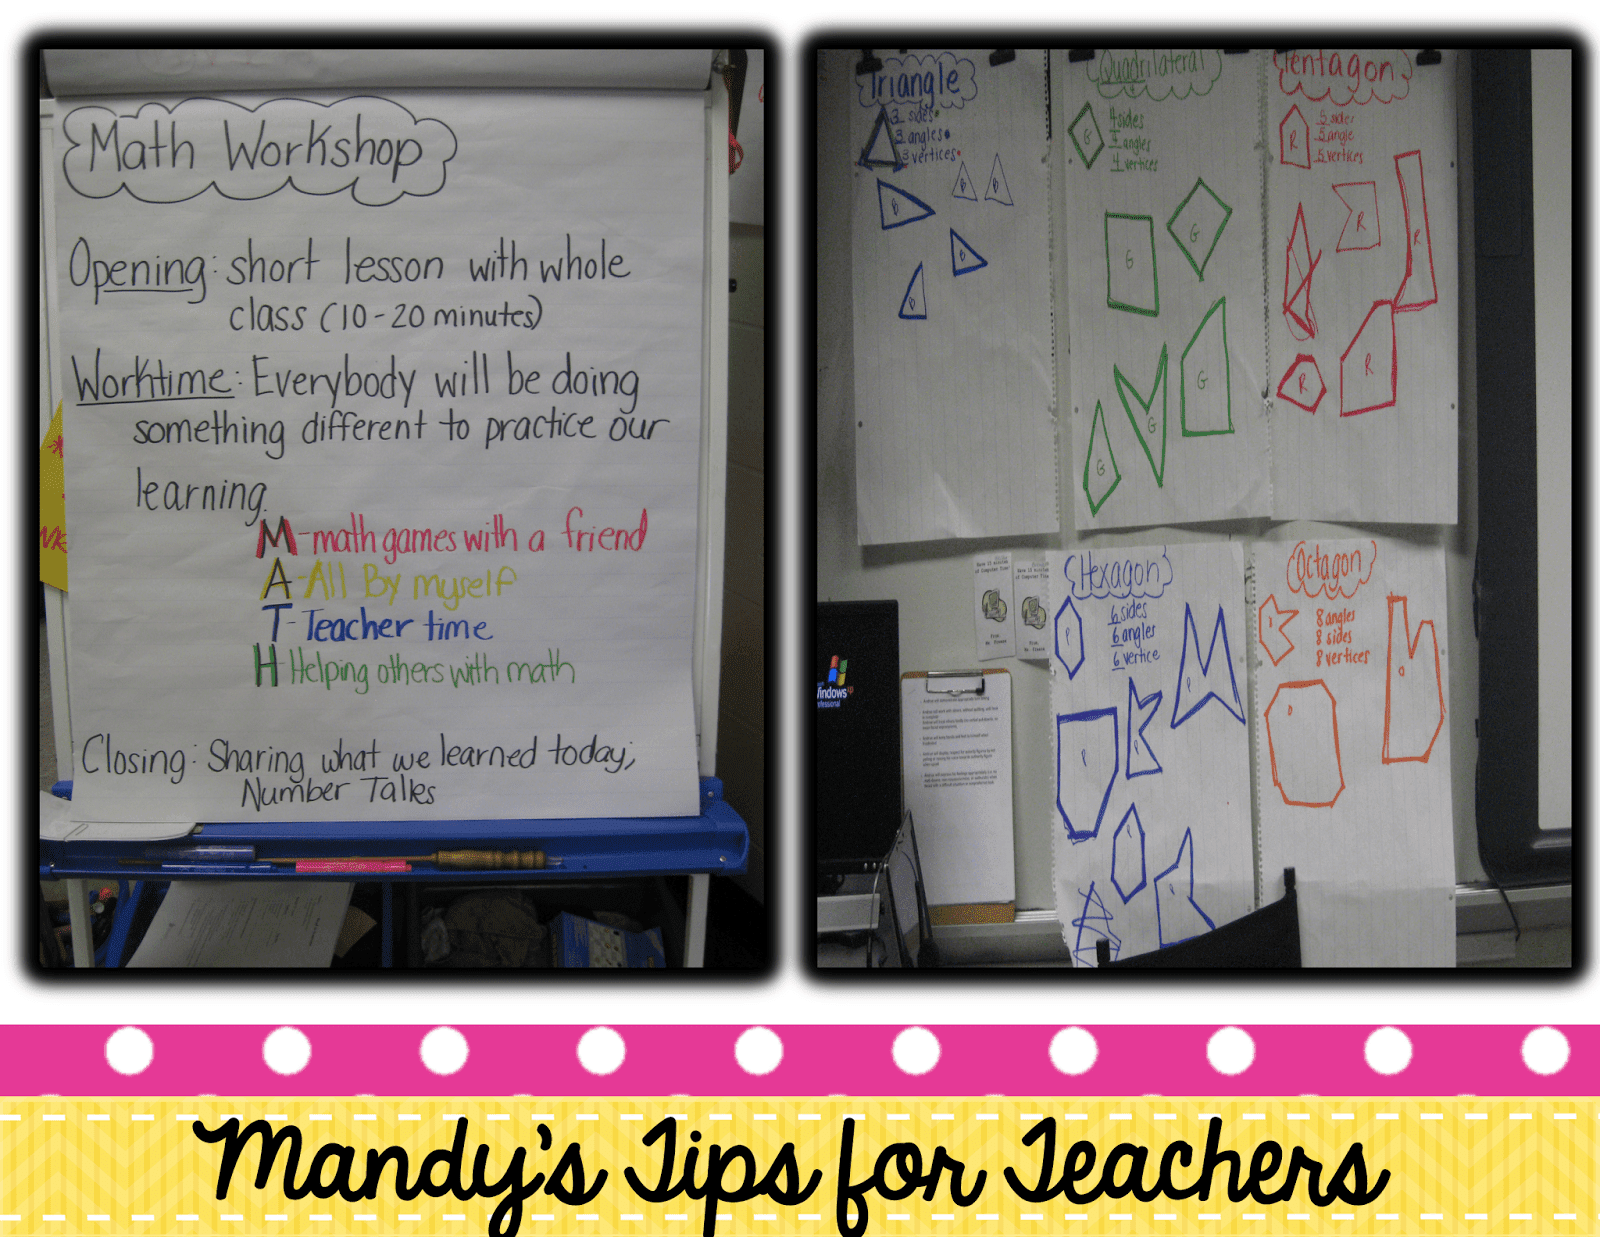 Math Workshop
Opening: short lesson with whole
class (10-20 minutes)
Worktime: Everybody will be doing
something different to practice our
learning.
M-math games with a friend
A-All By myself
T-Teacher time
H-Helping others with math
Closing: Sharing what we learned today;
Number Talks
Triangle
3 sides
3 angles
3 vertices
B
B
B
B
B
Quadrilateral
G
4 sides
4 angles
4 vertices
G
G
G
G
G
Pentagon
R
5 sides
5 angle
5 vertices
R
R
R
R
Hexagon
P
6 sides
6 angles
6 vertice
P
P
P
P
Octagon
8 angles
8 sides
8 vertices
Windows xp
Professional
Mandy's Tips for Teachers